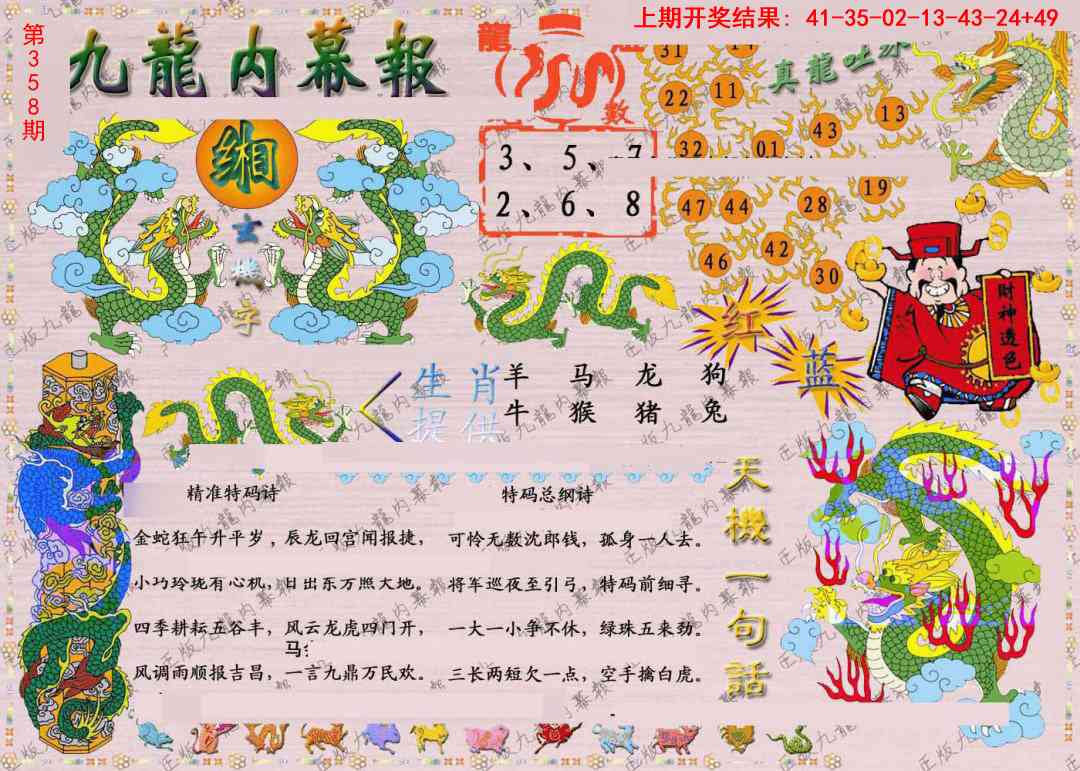 上期开奖结果: 41-35-02-13-43-24+49
第358期
九龍内幕報
龍
数
真龍吐珠
3、5、7
2、6、8
31
22
11
43
13
32
01
47
44
28
19
46
42
30
缃
玄
機
字
财神透色
红
蓝
生肖
提供
羊 马 龙 狗
牛 猴 猪 兔
精准特码诗
金蛇狂午升平岁，辰龙回宫闻报捷，
小巧玲珑有心机，日出东方照大地。
四季耕耘五谷丰，风云龙虎四门开，
风调雨顺报吉昌，一言九鼎万民欢。
特码总纲诗
可怜无数沈郎钱，孤身一人去。
将军巡夜至引弓，特码前细寻。
一大一小争不休，绿珠五来劲。
三长两短欠一点，空手擒白虎。
天機一句話
正版九龍内幕報